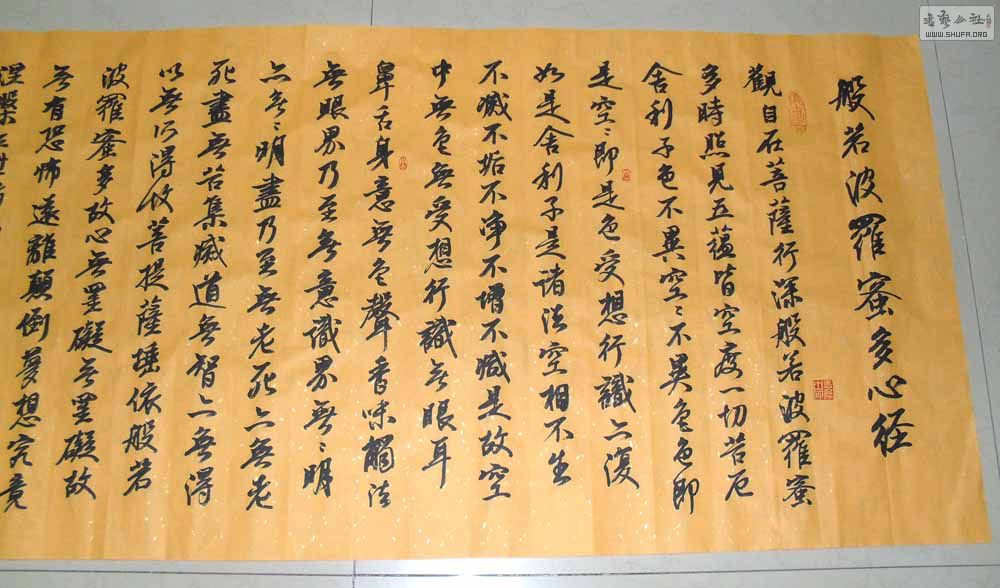 般若波羅蜜多心径
觀自在菩薩行深般若波羅蜜
多時照見五蘊皆空度一切苦厄
舍利子色不異空〻不異色色即
是空〻即是色受想行識亦復
如是舍利子是諸法空相不生
不滅不垢不净不增不减是故空
中無色無受想行識無眼耳
鼻舌身意無色聲香味觸法
無眼界乃至無意識界無〻明
亦無〻明盡乃至無老死亦無老
死盡無苦集滅道無智亦無得
以無所得故菩提薩埵依般若
波羅蜜多故心無罣礙無罣礙故
無有恐怖遠離顛倒夢想究竟
涅槃三世
书艺公社
WWW.SHUFA.ORG